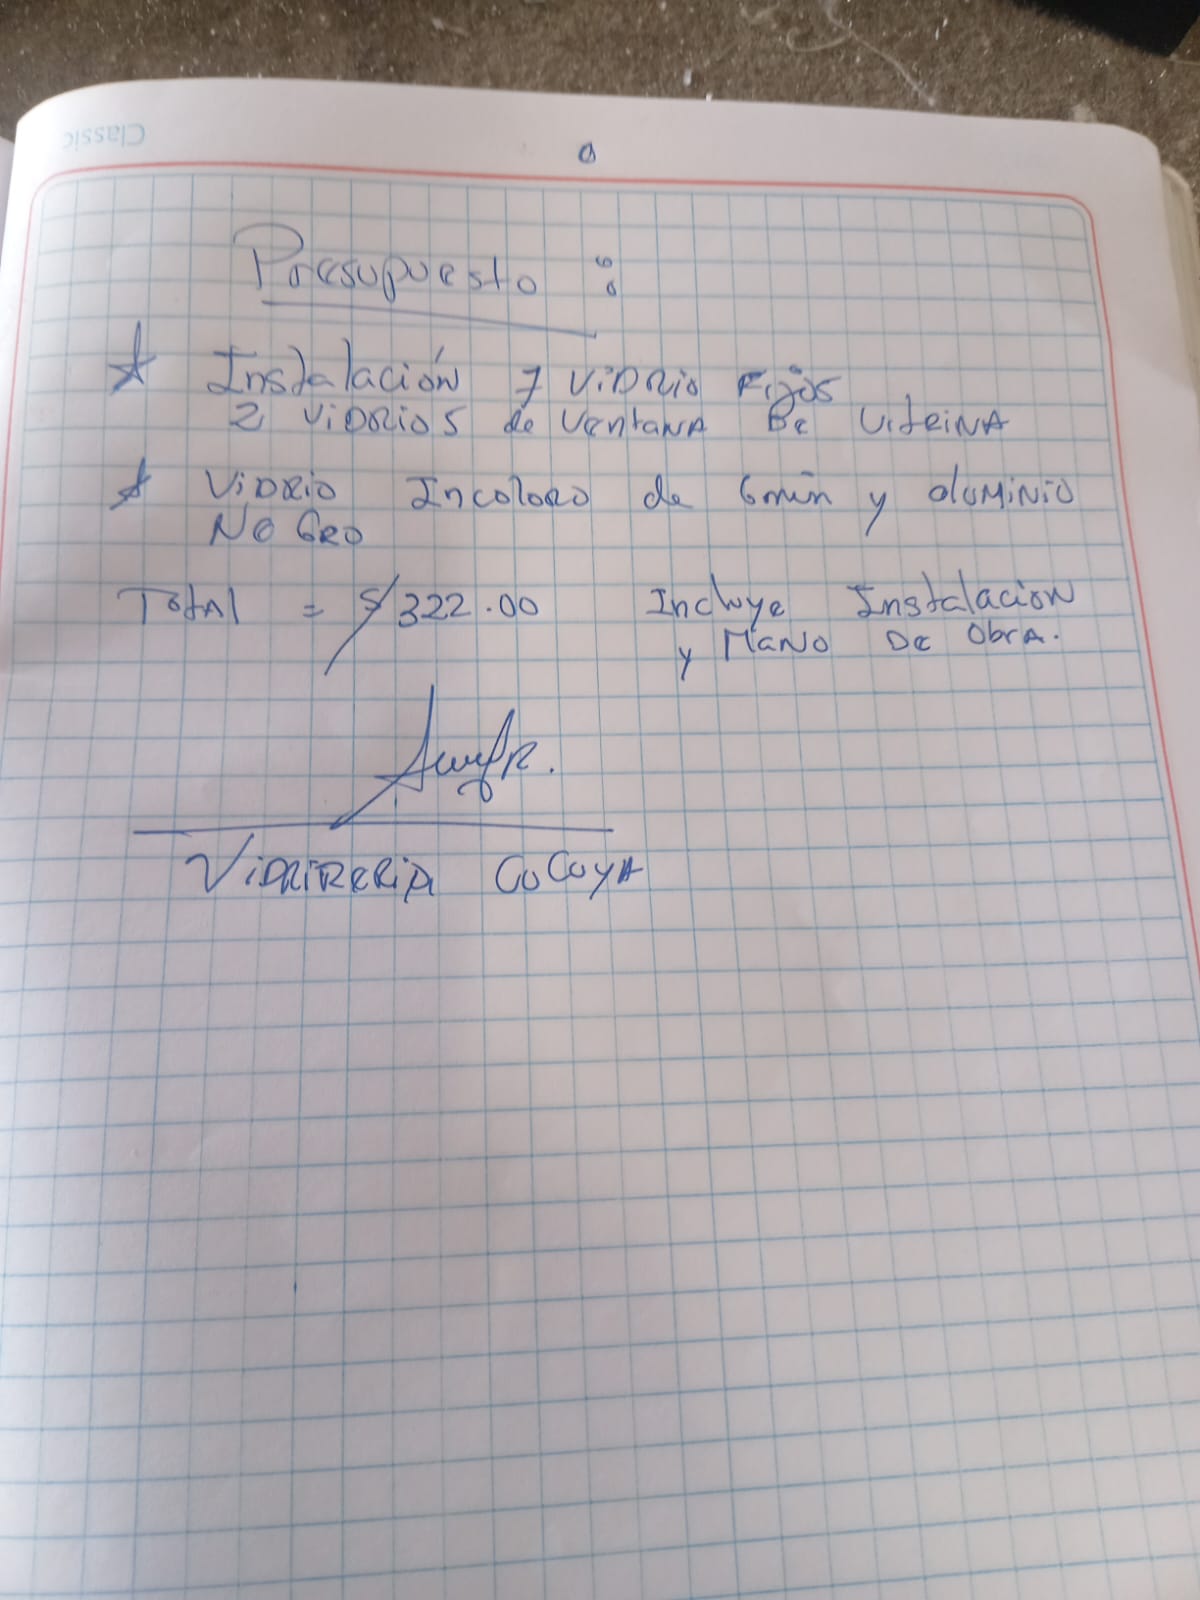 Classic
Presupuesto :
Instalación 7 Vidrio Fijos
2 Vidrios de Ventana De Vitrina
Vidrio Incoloro de 6mm y aluminio
Negro
Total = S/322.00 Incluye Instalacion
y Mano De Obra.
Vidrireria CoCoyA